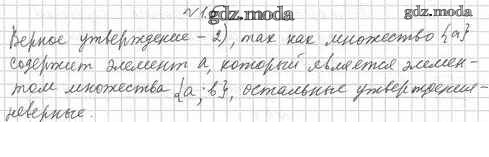 №1. gdz.moda gdz.moda
Верное утверждение - 2), так как множество {a}
содержит элемент a, который является элемен-
том множества {a; b}, остальные утверждения -
неверные.